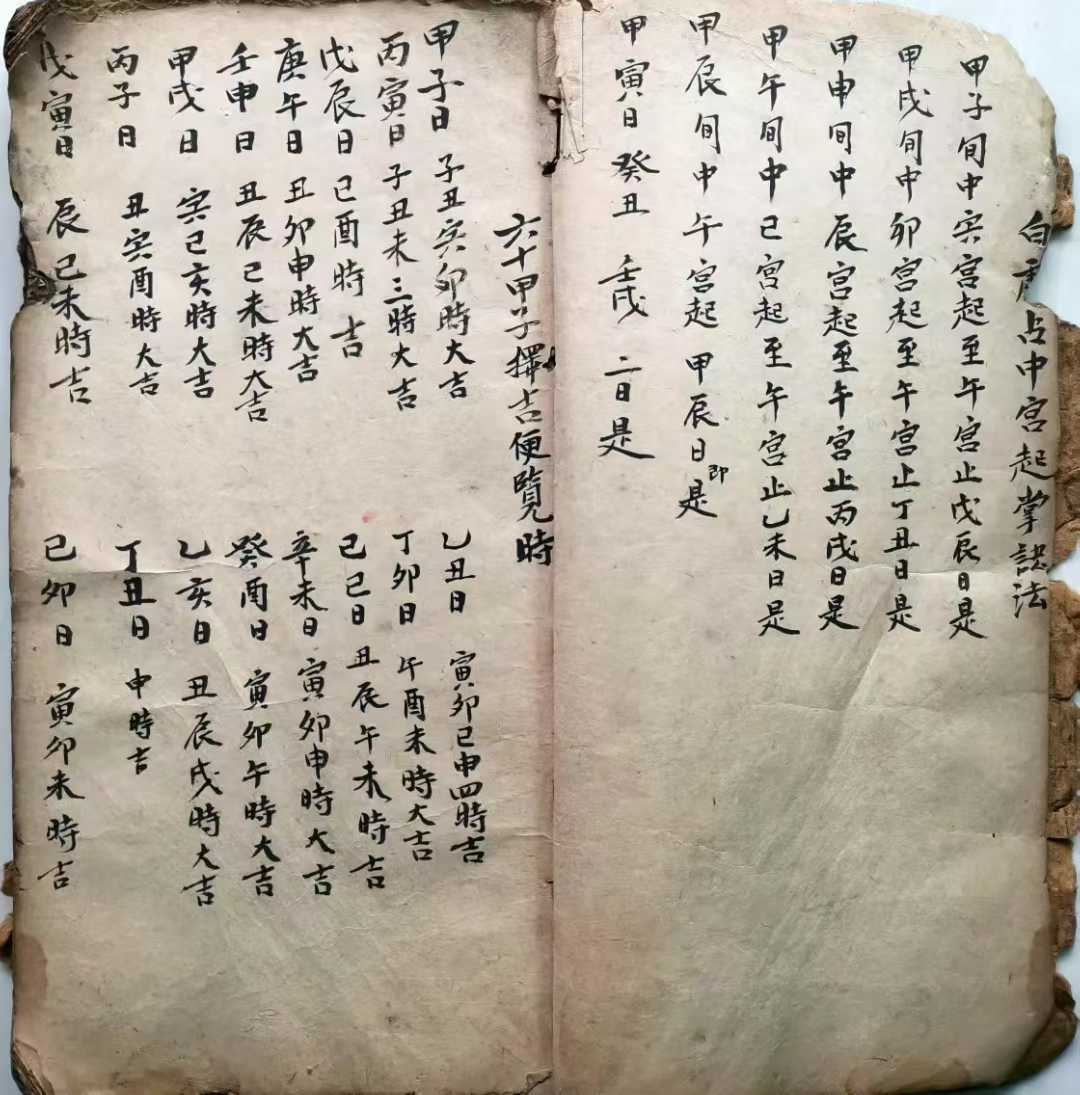 白虎占中宫起掌訣法
甲子旬中寅宫起至午宫止戊辰日是
甲戌旬中卯宫起至午宫止丁丑日是
甲申旬中辰宫起至午宫止丙戌日是
甲午旬中巳宫起至午宫止乙未日是
甲辰旬中午宫起甲辰日即是
甲寅日癸丑 壬戌 二日是
六十甲子擇吉便覽時
甲子日 子丑寅卯時大吉 乙丑日 寅卯巳申四時吉
丙寅日 子丑未三時大吉 丁卯日 午酉未時大吉
戊辰日 巳酉時吉 己巳日 丑辰午未時吉
庚午日 丑卯申時大吉 辛未日 寅卯申時大吉
壬申日 丑辰巳未時大吉 癸酉日 寅卯午時大吉
甲戌日 寅巳亥時大吉 乙亥日 丑辰戌時大吉
丙子日 丑寅酉時大吉 丁丑日 申時吉
戊寅日 辰巳未時吉 己卯日 寅卯未時吉